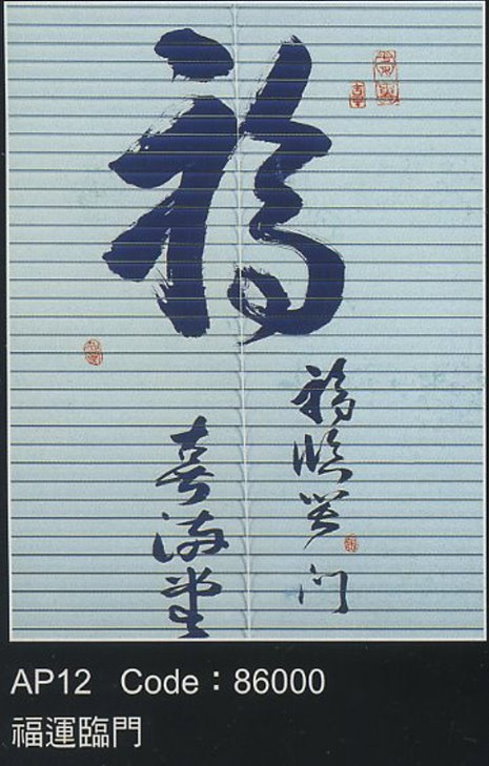 福
福臨門
喜滿堂
AP12 Code：86000
福運臨門